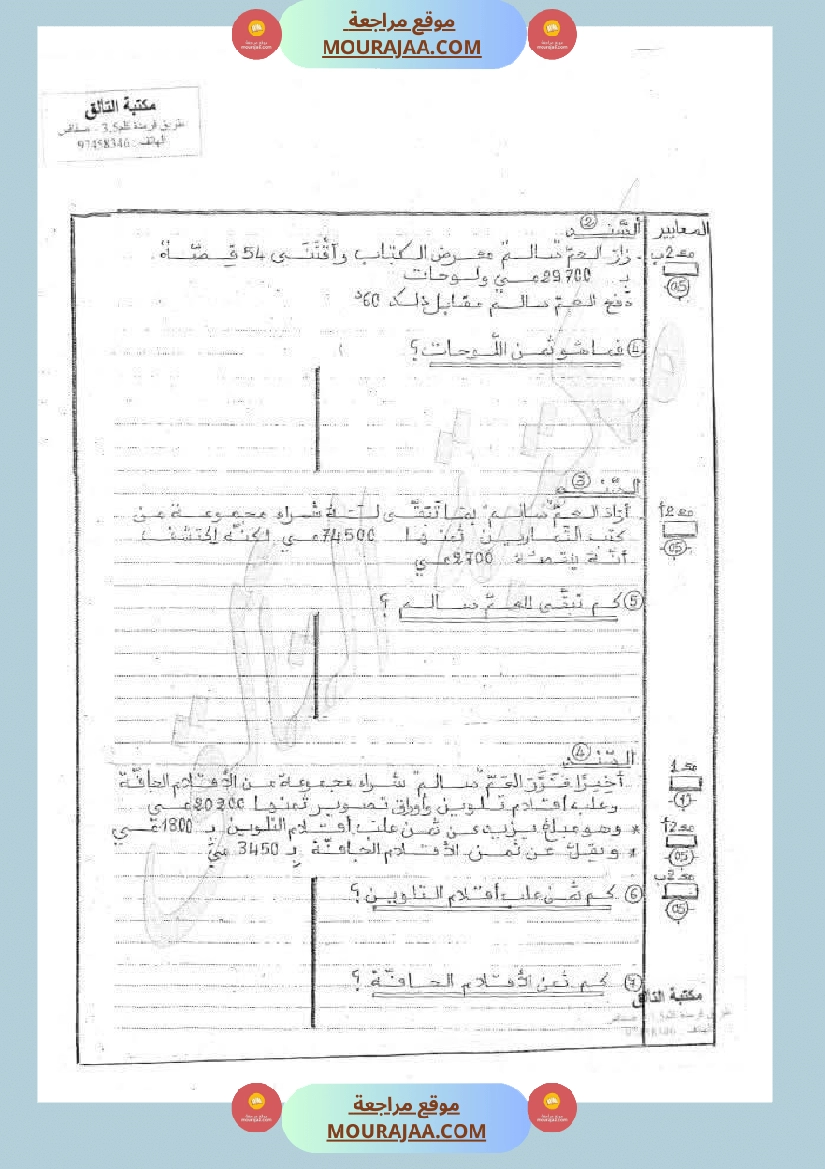 موقع مراجعة
MOURAJAA.COM
مكتبة التألق
طريق قرمدة كلم3,5 - صفاقس
الهاتف : 97458346
المعايير
السّند ②
مع2ب
زار العمّ سالم معرض الكتاب واقتنى 54 قصّة
بـ 29700مي ولوحات
05
دفع العمّ سالم مقابل ذلك 60د
④ فما هو ثمن اللّوحات؟
السّند ③
مع2أ
أراد العمّ سالم بما تبقّى له شراء مجموعة من
كتب التّمارين ثمنها 74500مي لكنّه اكتشف
05
أنّه ينقصه 2700مي
⑤ كم تبقّى للعمّ سالم ؟
السّند ④
مع1
أخيرا قرّر العمّ سالم شراء مجموعة من الأقلام الجافّة
وعلب أقلام تلوين وأوراق تصوير ثمنها 20300مي
مع2أ
* وهو مبلغ يزيد عن ثمن علب أقلام التلوين بـ 1800مي
* و يقلّ عن ثمن الأقلام الجافّة بـ 3450 مي
05
مع2ب
⑥ كم ثمن علب أقلام التلوين ؟
05
⑦ كم ثمن الأقلام الجافّة ؟
مكتبة التألق
موقع مراجعة
MOURAJAA.COM